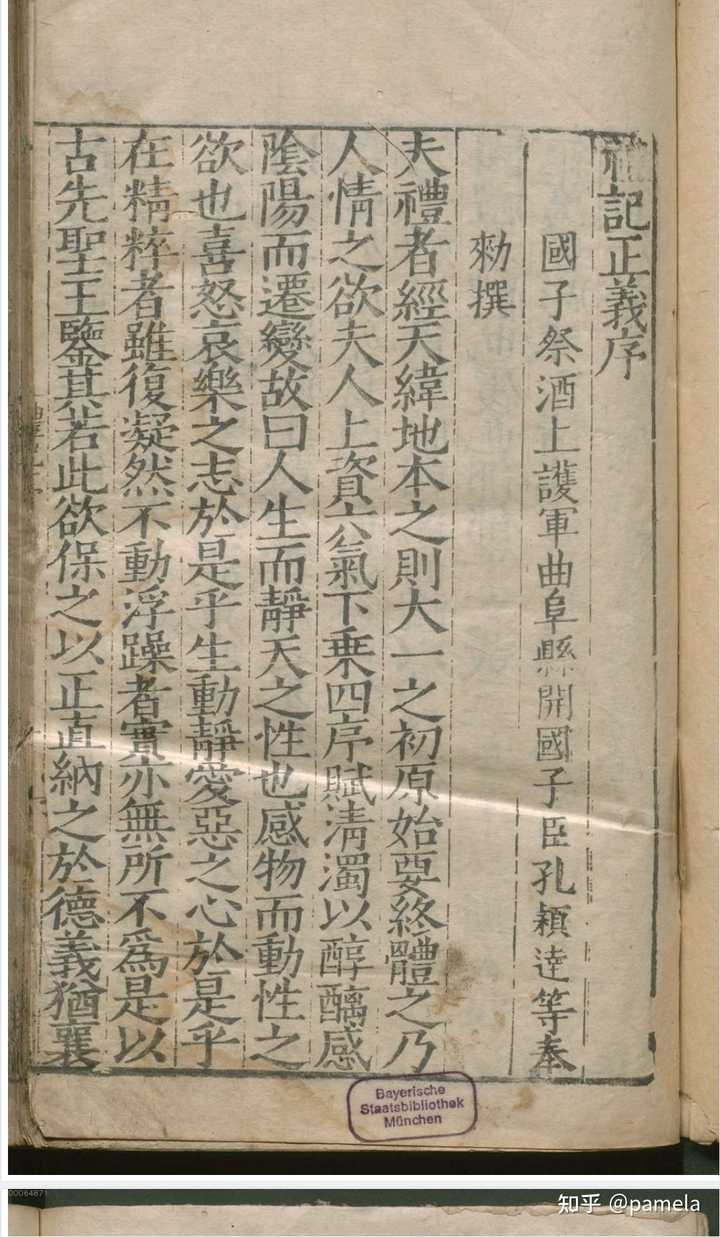 禮記正義序
國子祭酒上護軍曲阜縣開國子臣孔穎達等奉
勑撰
夫禮者經天緯地本之則大一之初原始要終體之乃
人情之欲夫人上資六氣下乗四序賦清濁以醇醨感
陰陽而遷變故曰人生而靜天之性也感物而動性之
欲也喜怒哀樂之志於是乎生動靜愛惡之心於是乎
在精粹者雖復凝然不動浮躁者實亦無所不爲是以
古先聖王鑒其若此欲保之以正直納之於德義猶襄
Bayerische
Staatsbibliothek
München
00064871
知乎 @pamela